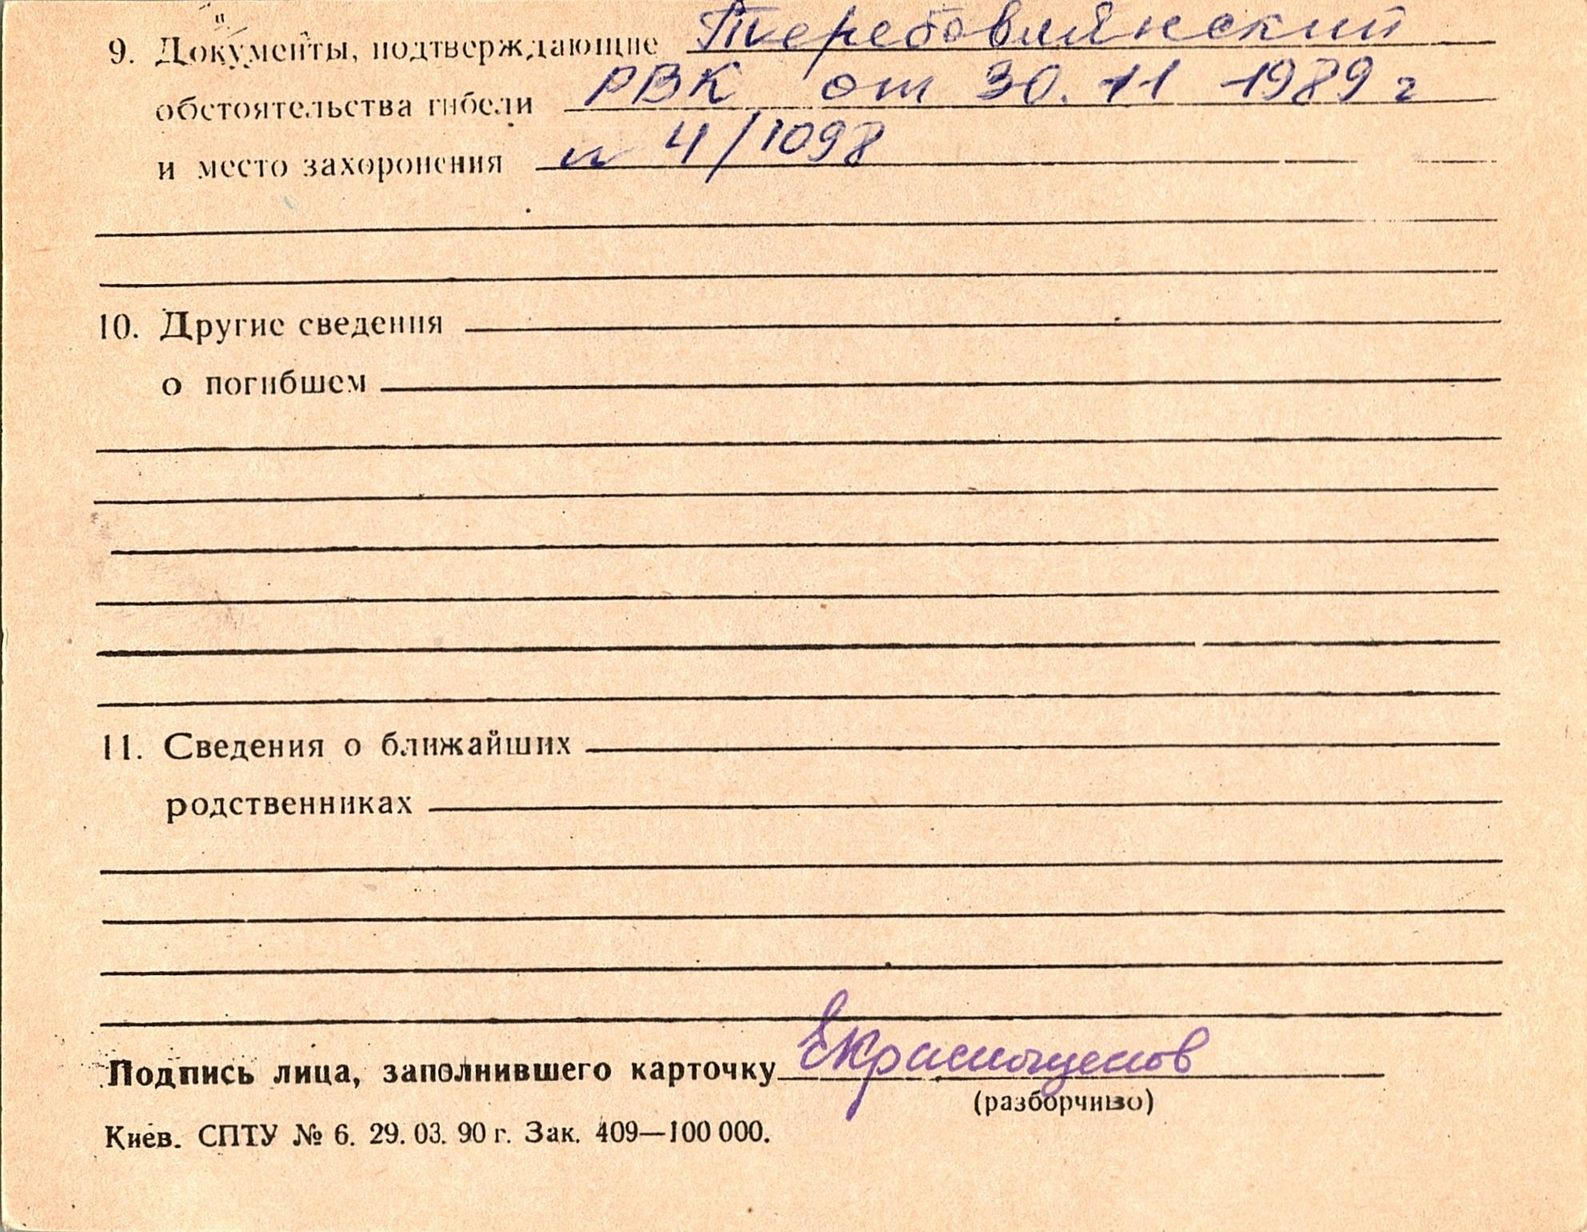 9. Документы, подтверждающие Теребовлянский
обстоятельства гибели РВК от 30.11 1989 г
и место захоронения н 4/1098
10. Другие сведения
о погибшем
11. Сведения о ближайших
родственниках
Подпись лица, заполнившего карточку ЕКраснощеков
(разборчиво)
Киев. СПТУ № 6. 29. 03. 90 г. Зак. 409—100 000.